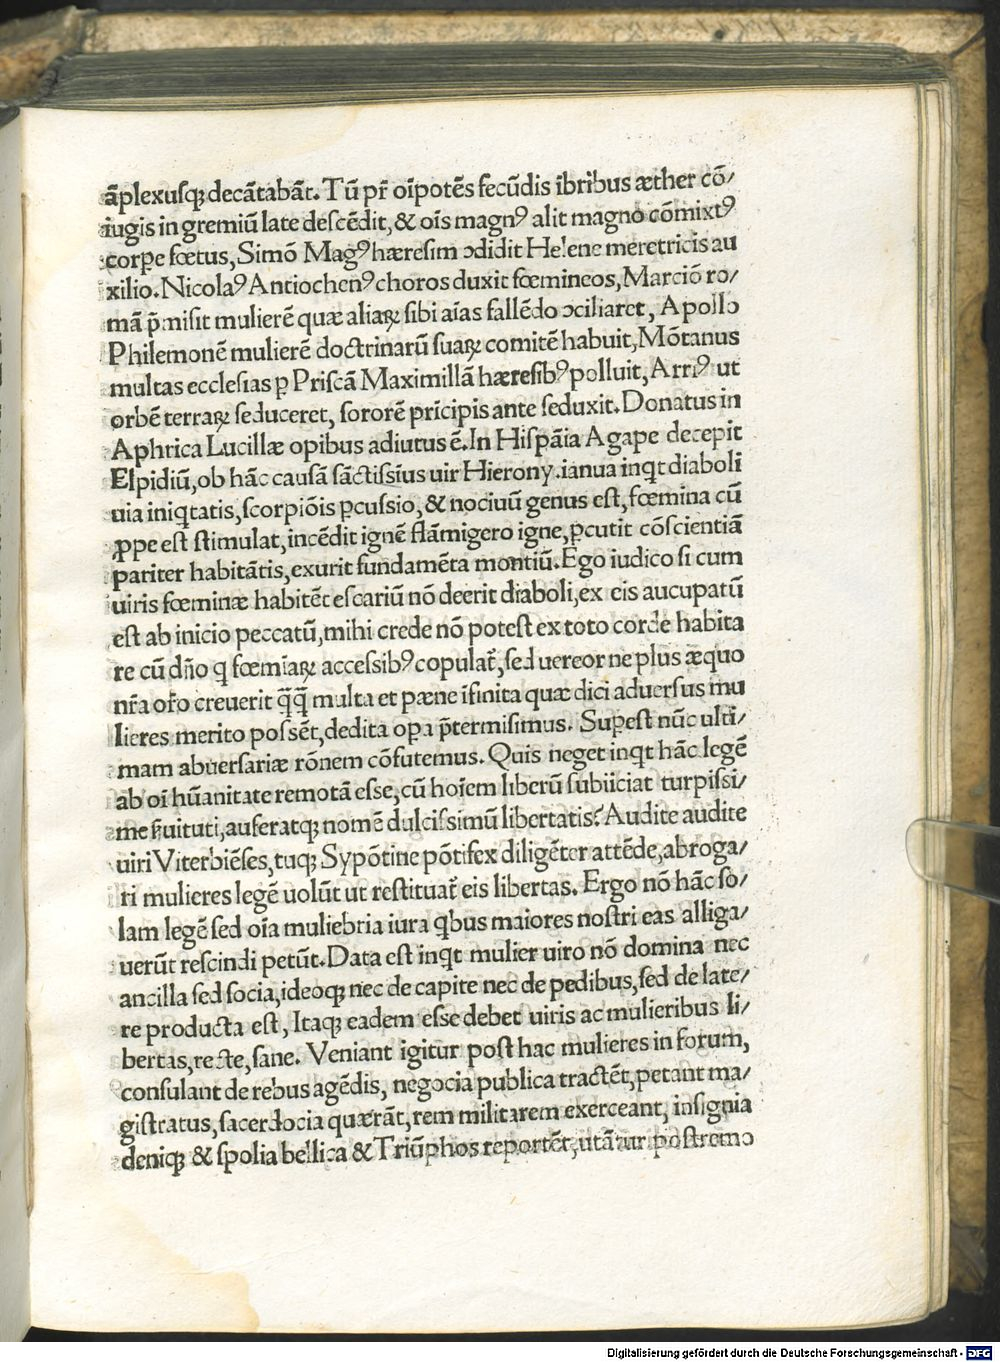 āplexusqꝫ decātabāt. Tū pr̄ oīpotēs fecūdis ībribus æther cō/
iugis in gremiū late descēdit, & oīs magnꝰ alit magno cōmixtꝰ
corꝑe fœtus, Simō Magꝰ hæresim ↄdidit Helene meretricis au
xilio. Nicolaꝰ Antiochenꝰ choros duxit fœmineos, Marciō ro/
mā p̄misit mulierē quæ aliaꝝ sibi aīas fallēdo ↄciliaret, Apollo
Philemonē mulierē doctrinarū suaꝝ comitē habuit, Mōtanus
multas ecclesias ꝑ Priscā Maximillā hæresibꝰ polluit, Arriꝰ ut
orbē terraꝝ seduceret, sororē prīcipis ante seduxit. Donatus in
Aphrica Lucillæ opibus adiutus ē. In Hispāia Agape decepit
Elpidiū, ob hāc causā sāctissīus uir Hierony. ianua inqͭ diaboli
uia iniqͭtatis, scorpiōis ꝑcussio, & nociuū genus est, fœmina cū
ꝓpe est stimulat, incēdit ignē flāmigero igne, ꝑcutit cōscientiā
pariter habitātis, exurit fundamēta montiū. Ego iudico si cum
uiris fœminæ habitēt escariū nō deerit diaboli, ex eis aucupatū
est ab inicio peccatū, mihi crede nō potest ex toto corde habita
re cū dño q fœmīaꝝ accessibꝰ copulat̄, sed uereor ne plus æquo
nr̄a or̄o creuerit q̄q̄ multa et pæne īfinita quæ dici aduersus mu
lieres merito possēt, dedita oꝑa p̄termisimus. Suꝑest nūc ulti/
mam abuersariæ rōnem cōfutemus. Quis neget inqͭ hāc legē
ab oī hūanitate remotā esse, cū hoīem liberū subiiciat turpissi/
me s̄uituti, auferatqꝫ nomē dulcissimū libertatis? Audite audite
uiri Viterbiēses, tuqꝫ Sypōtine pōtifex diligēter attēde, abroga/
ri mulieres legē uolūt ut restituat̄ eis libertas. Ergo nō hāc so/
lam legē sed oīa muliebria iura qͥbus maiores nostri eas alliga/
uerūt rescindi petūt. Data est inqͭ mulier uiro nō domina nec
ancilla sed socia, ideoqꝫ nec de capite nec de pedibus, sed de late/
re producta est, Itaqꝫ eadem esse debet uiris ac mulieribus li/
bertas, recte, sane. Veniant igitur post hac mulieres in forum,
consulant de rebus agēdis, negocia publica tractēt, petant ma/
gistratus, sacerdocia quærāt, rem militarem exerceant, insignia
deniqꝫ & spolia bellica & Triūphos reportēt, utātur postremo
Digitalisierung gefördert durch die Deutsche Forschungsgemeinschaft - DFG